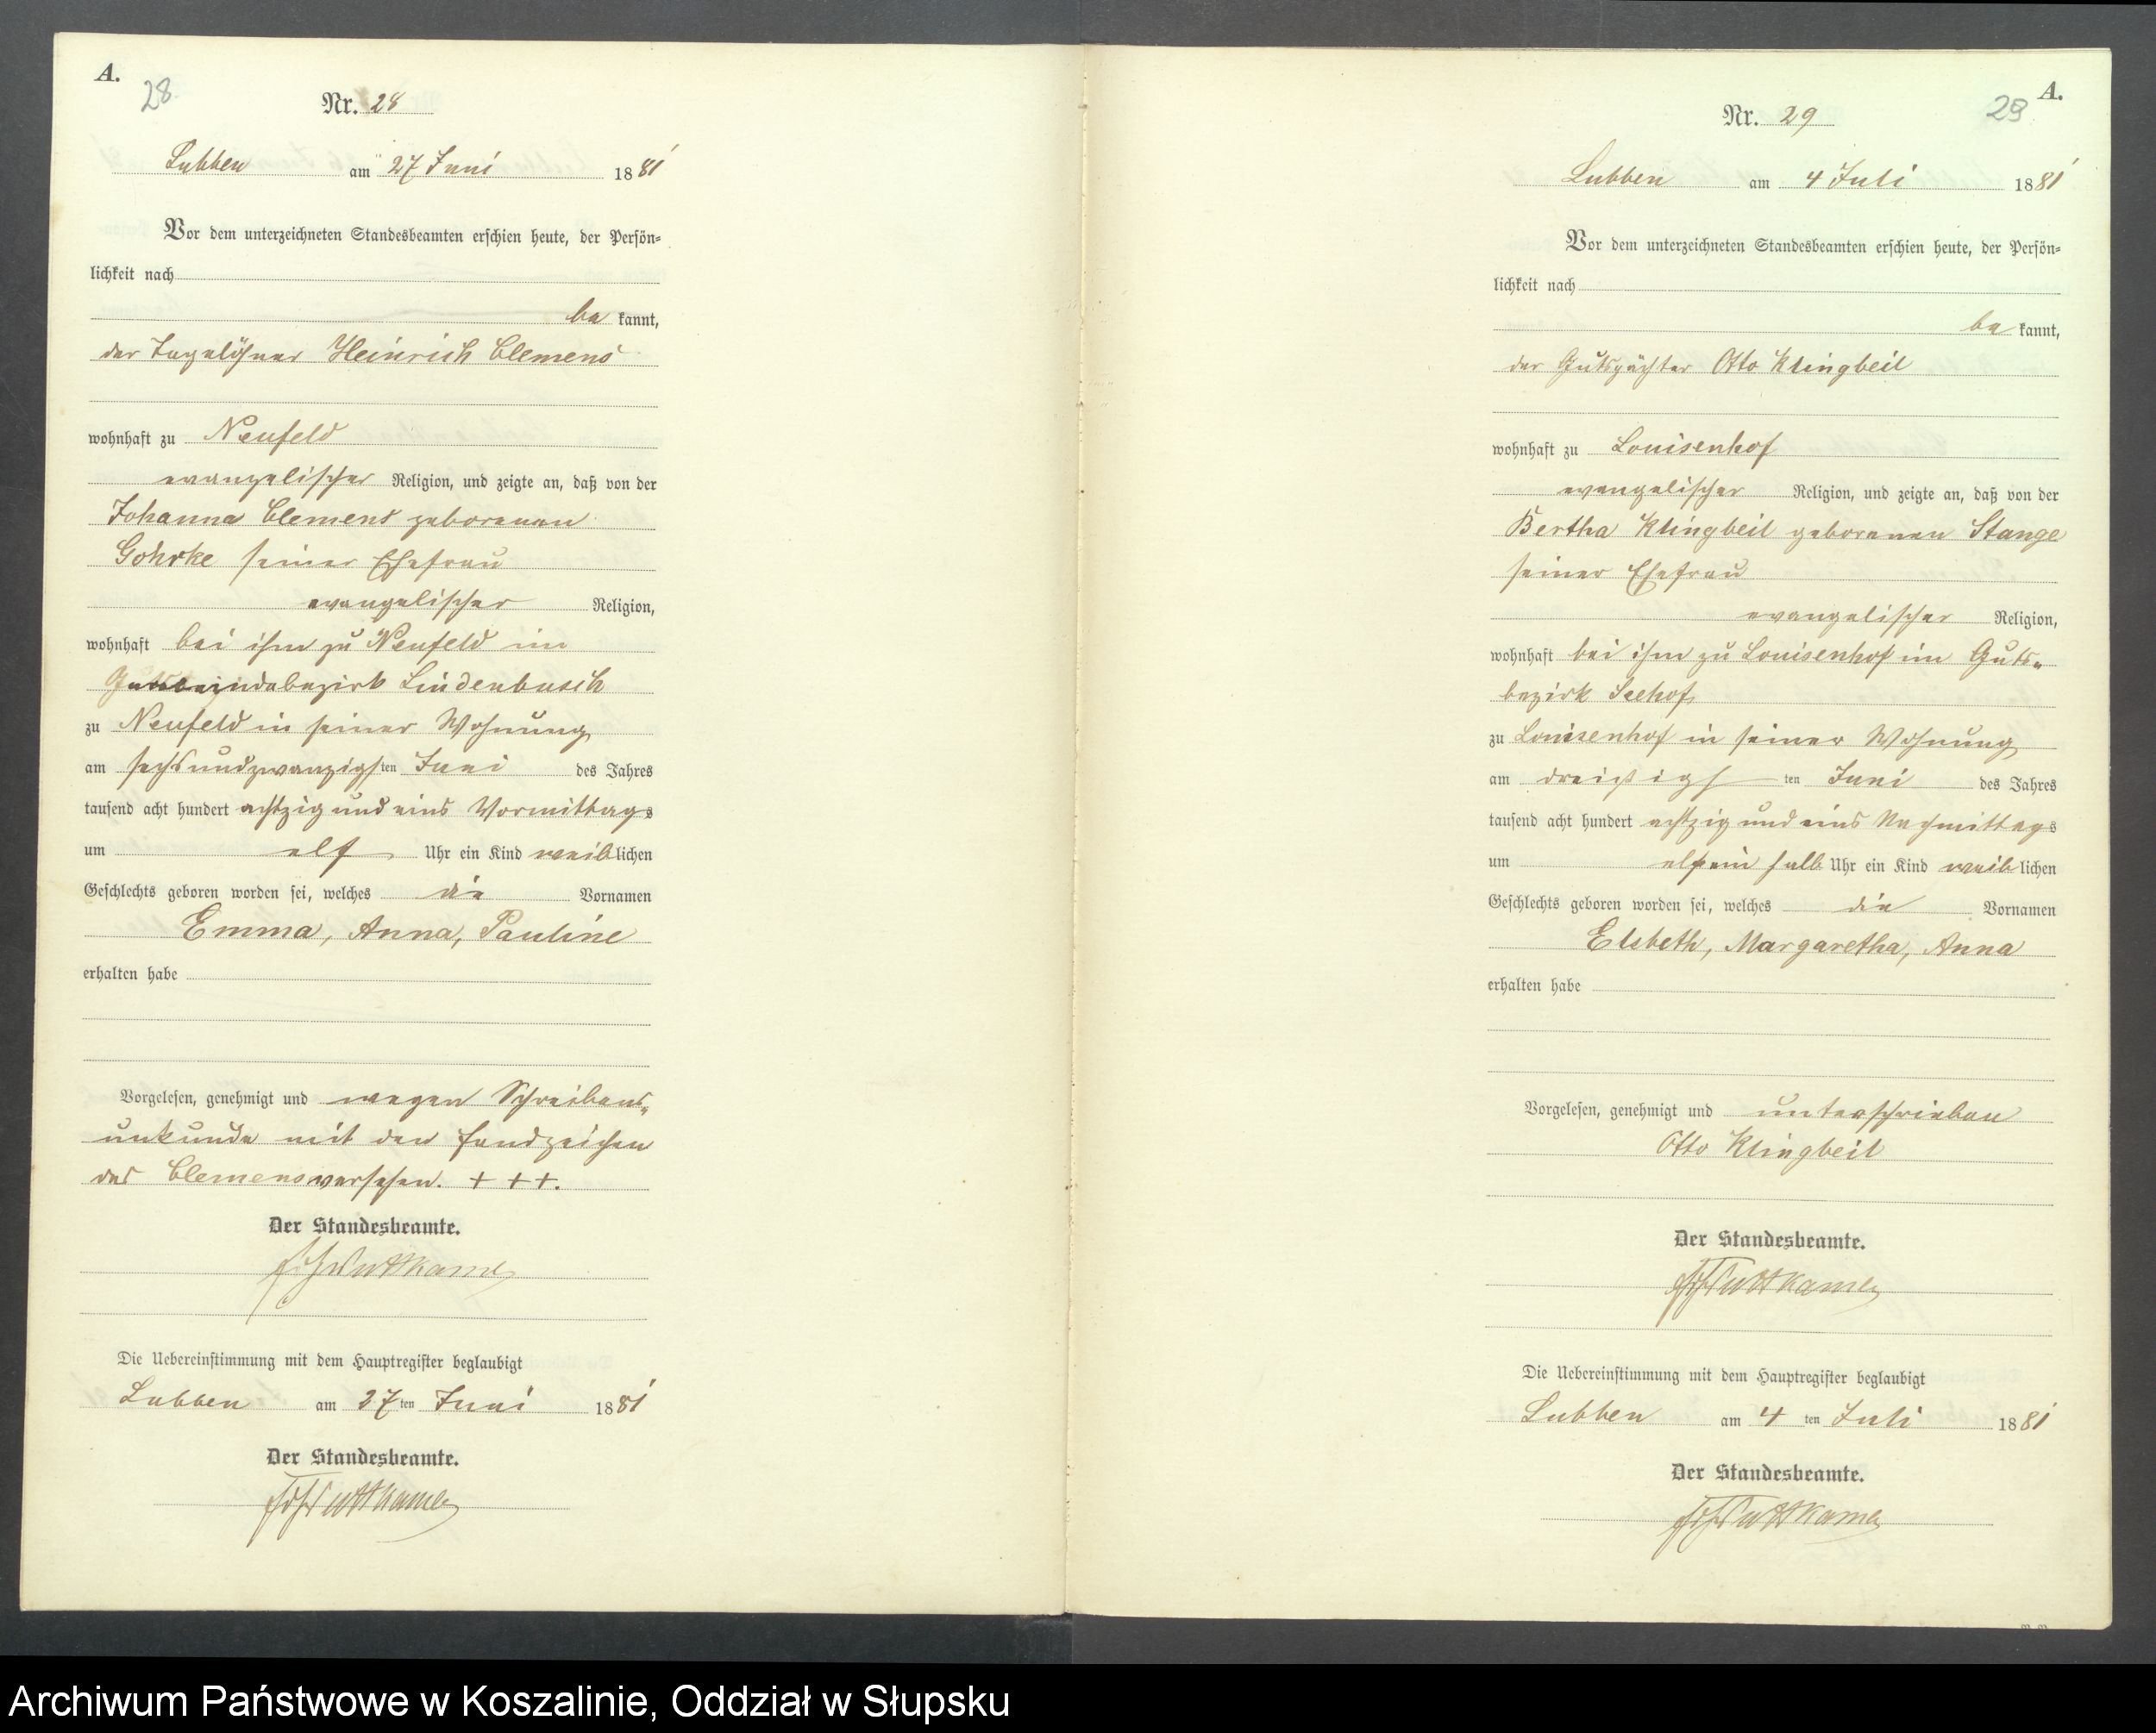 A.
28
Nr. 28
Lubben am 27 Juni 1881
Vor dem unterzeichneten Standesbeamten erschien heute, der Persön=
lichkeit nach
be kannt,
der Tagelöhner Heinrich Clemens
wohnhaft zu Neufeld
evangelischer Religion, und zeigte an, daß von der
Johanna Clemens geborenen
Gohrke seiner Ehefrau
evangelischer Religion,
wohnhaft bei ihm zu Neufeld im
Lindenbusch
zu Neufeld in seiner Wohnung
am sechsundzwanzigsten Juni des Jahres
tausend acht hundert achtzig und eins Vormittags
um elf Uhr ein Kind weiblichen
Geschlechts geboren worden sei, welches die Vornamen
Emma, Anna, Pauline
erhalten habe
Vorgelesen, genehmigt und wegen Schreibens„
unkunde mit den Handzeichen
des Clemens versehen. + + +.
Der Standesbeamte.
Puttkamer
Die Uebereinstimmung mit dem Hauptregister beglaubigt
Lubben am 27ten Juni 1881
Der Standesbeamte.
Puttkamer
A.
29
Nr. 29
Lubben am 4 Juli 1881
Vor dem unterzeichneten Standesbeamten erschien heute, der Persön=
lichkeit nach
be kannt,
der Gutspächter Otto Klingbeil
wohnhaft zu Louisenhof
evangelischer Religion, und zeigte an, daß von der
Bertha Klingbeil geborenen Stange
seiner Ehefrau
evangelischer Religion,
wohnhaft bei ihm zu Louisenhof im Guts„
bezirk Seehof
zu Louisenhof in seiner Wohnung
am dreißigsten Juni des Jahres
tausend acht hundert achtzig und eins Nachmittags
um elfeinhalb Uhr ein Kind weiblichen
Geschlechts geboren worden sei, welches die Vornamen
Elsbeth, Margaretha, Anna
erhalten habe
Vorgelesen, genehmigt und unterschrieben
Otto Klingbeil
Der Standesbeamte.
Puttkamer
Die Uebereinstimmung mit dem Hauptregister beglaubigt
Lubben am 4 ten Juli 1881
Der Standesbeamte.
Puttkamer
Archiwum Państwowe w Koszalinie, Oddział w Słupsku